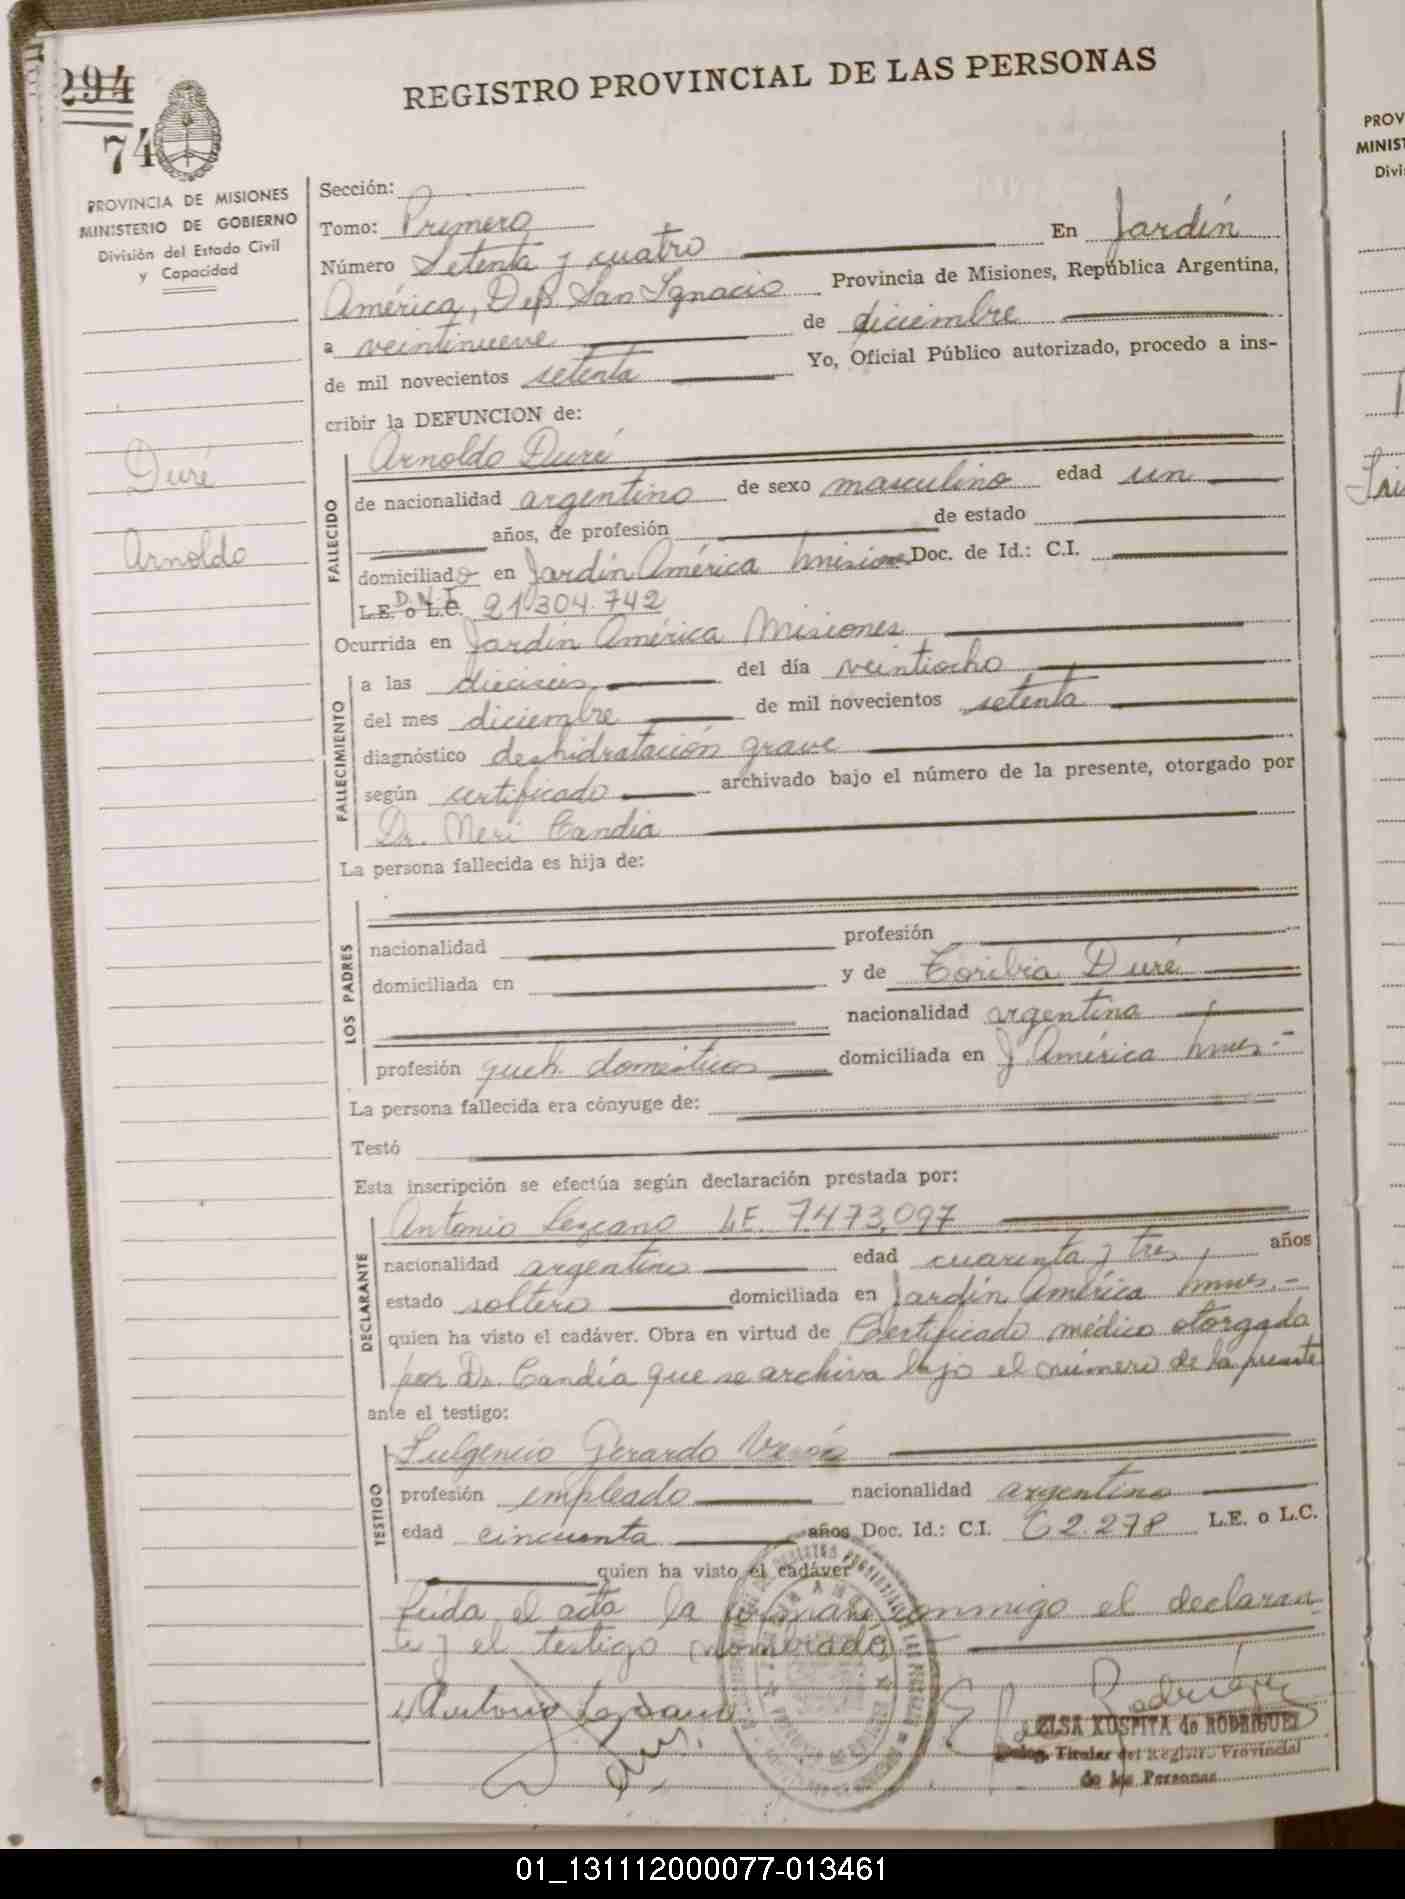 294
74
REGISTRO PROVINCIAL DE LAS PERSONAS
PROVINCIA DE MISIONES
MINISTERIO DE GOBIERNO
División del Estado Civil
y Capacidad
Duré
Arnoldo
Sección:
Tomo: Primero
Número Setenta y cuatro En Jardín
América, Dep. San Ignacio Provincia de Misiones, República Argentina,
a veintinueve de diciembre
de mil novecientos setenta Yo, Oficial Público autorizado, procedo a ins-
cribir la DEFUNCION de:
FALLECIDO
Arnoldo Duré
de nacionalidad argentino de sexo masculino edad un
años, de profesión de estado
domiciliado en Jardín América Misiones Doc. de Id.: C.I.
D.N.I.
L.E. o L.C. 21.304.742
Ocurrida en Jardín América Misiones
FALLECIMIENTO
a las dieciseis del día veintiocho
del mes diciembre de mil novecientos setenta
diagnóstico deshidratación grave
según certificado archivado bajo el número de la presente, otorgado por
Dr. Neri Candia
La persona fallecida es hija de:
LOS PADRES
nacionalidad profesión
domiciliada en y de Toribia Duré
nacionalidad argentina
profesión queh. domésticos domiciliada en J. América Mnes.-
La persona fallecida era cónyuge de:
Testó
Esta inscripción se efectúa según declaración prestada por:
DECLARANTE
Antonio Lezcano L.E. 7.473.097
nacionalidad argentino edad cuarenta y tres años
estado soltero domiciliada en Jardín América Mnes.-
quien ha visto el cadáver. Obra en virtud de Certificado médico otorgado
por Dr. Candia que se archiva bajo el número de la presente
ante el testigo:
TESTIGO
Fulgencio Gerardo
profesión empleado nacionalidad argentino
edad cincuenta años Doc. Id.: C.I. 62.278 L.E. o L.C.
quien ha visto el cadáver
Leida el acta la firman conmigo el declaran-
te y el testigo nombrado
Antonio Lezcano
ELSA KOSPITA de RODRIGUEZ
Deleg. Titular del Registro Provincial
de las Personas
PROV
MINIST
Divi
01_131112000077-013461